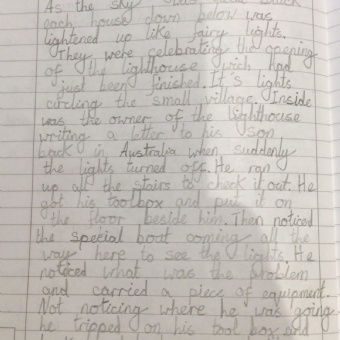 As the sky
each house down below was
lightened up like fairy lights.
They were celebrating the opening
of the lighthouse wich had
just been finished. It's lights
circling the small village. Inside
was the owner of the lighthouse
writing a letter to his son
back in Australia when suddenly
the lights turned off. He ran
up all the stairs to check it out. He
got his toolbox and put it on
the floor beside him. Then noticed
the special boat coming all the
way here to see the lights. He
noticed what was the problem
and carried a piece of equipment.
Not noticing where he was going
he tripped on his tool box and